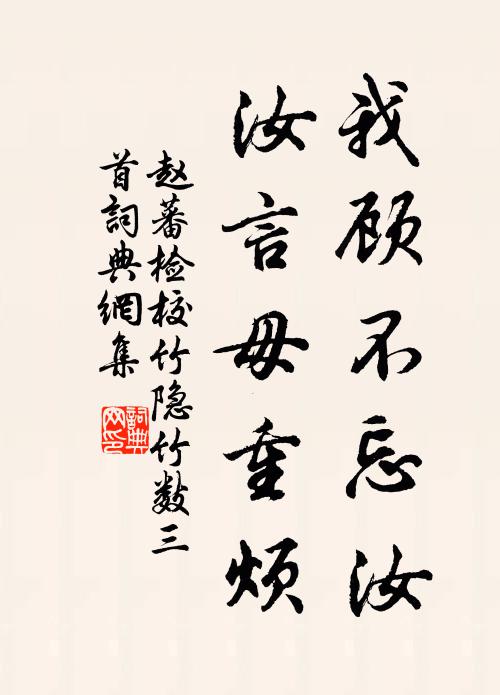 我顾不忘汝
汝言毋重烦
赵蕃检校竹隐竹数三
首詞典網集
詞典网印